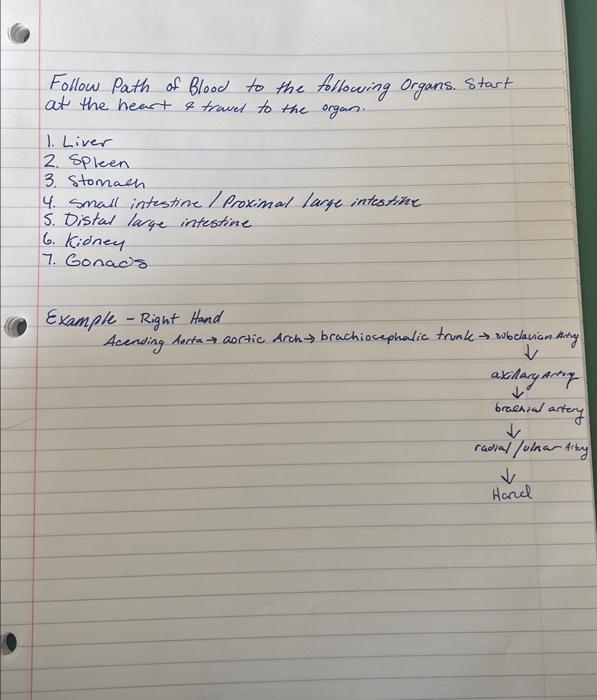 Follow Path of Blood to the following Organs. Start
at the heart & travel to the organ.
1. Liver
2. Spleen
3. Stomach
4. Small intestine / Proximal large intestine
5. Distal large intestine
6. Kidney
7. Gonads
Example - Right Hand
Acending Aorta → aortic Arch → brachiocephalic trunk → subclavian Artery
↓
axillary Artery
↓
brachial artery
↓
radial / ulnar Artery
↓
Hand